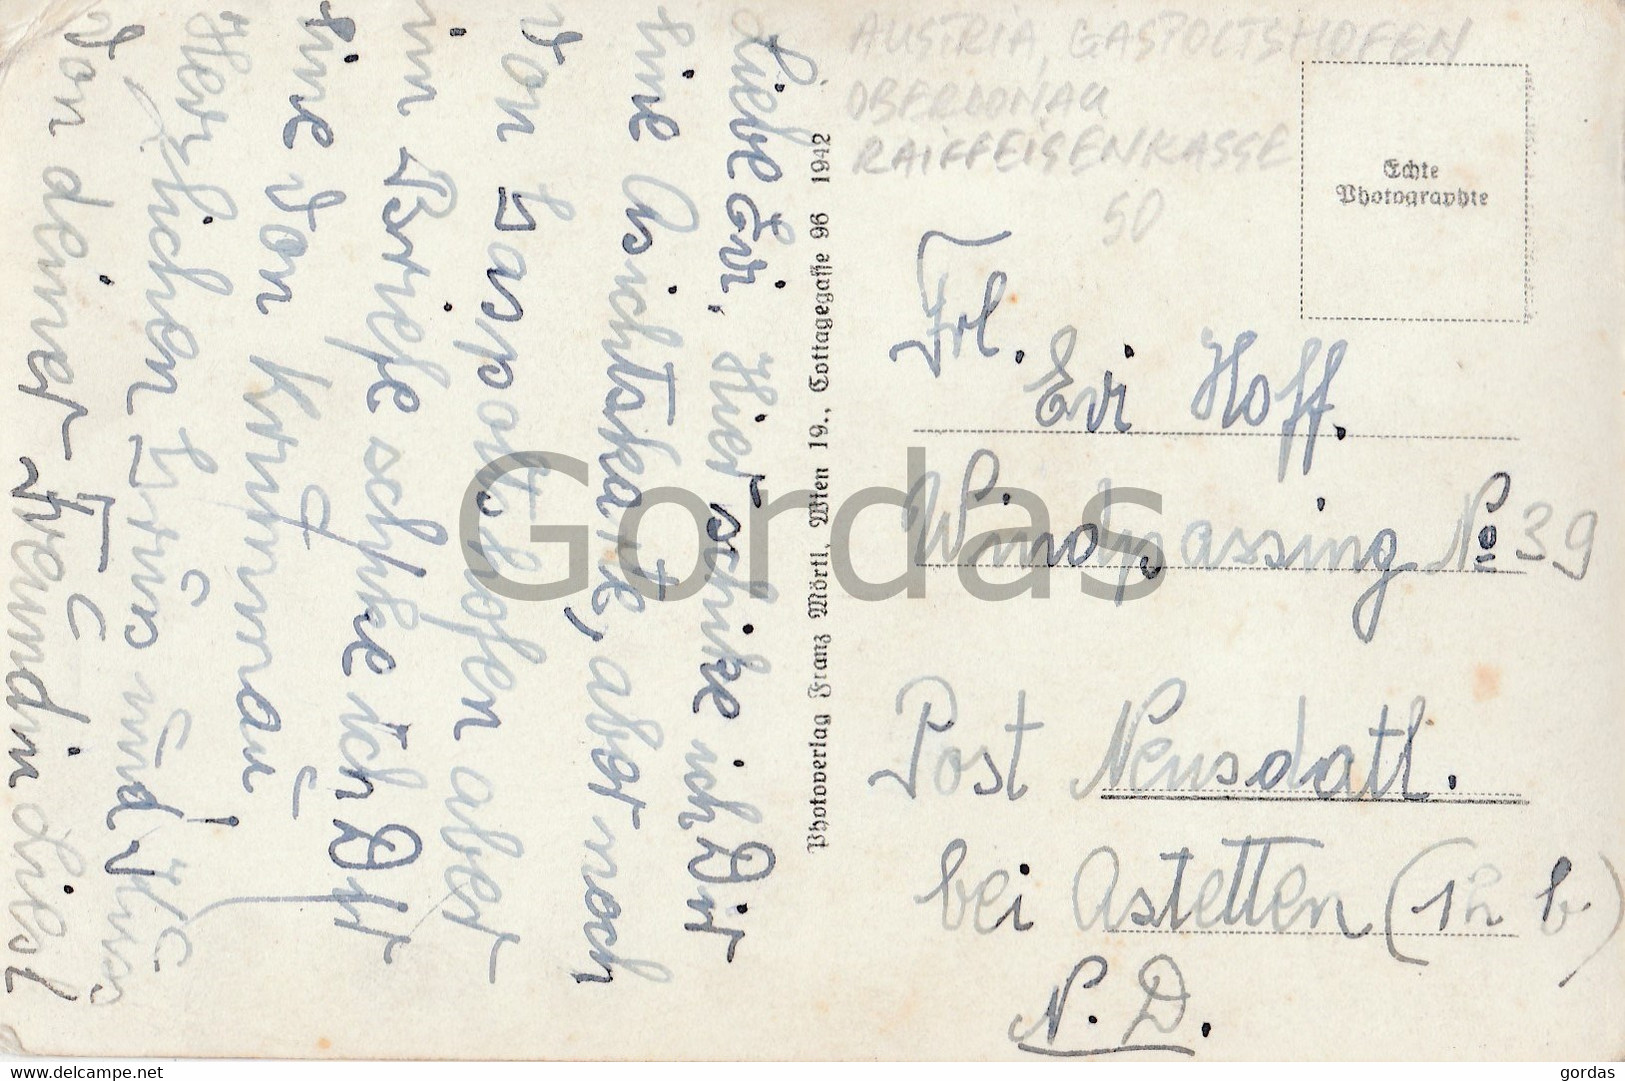 Liebe Evi, Hier schike ich Dir
Eine Asichtskarte, aber noch
von Gaspoltshofen aber
im Briefe schike ich Dir
Eine von Krumau!
Herzlichen Grüs und Kuss
von deiner Freundin Liesl
Photoverlag Franz Mörtl, Wien 19., Cottagegasse 96 1942
AUSTRIA, GASPOLTSHOFEN
OBERDONAU
RAIFFEISENKASSE
50
Echte
Photographie
Frl.
Evi Hoff.
Windpassing No 39
Post Neusdatl.
bei Astetten (12 b)
N. D.
Gordas
www.delcampe.net
gordas